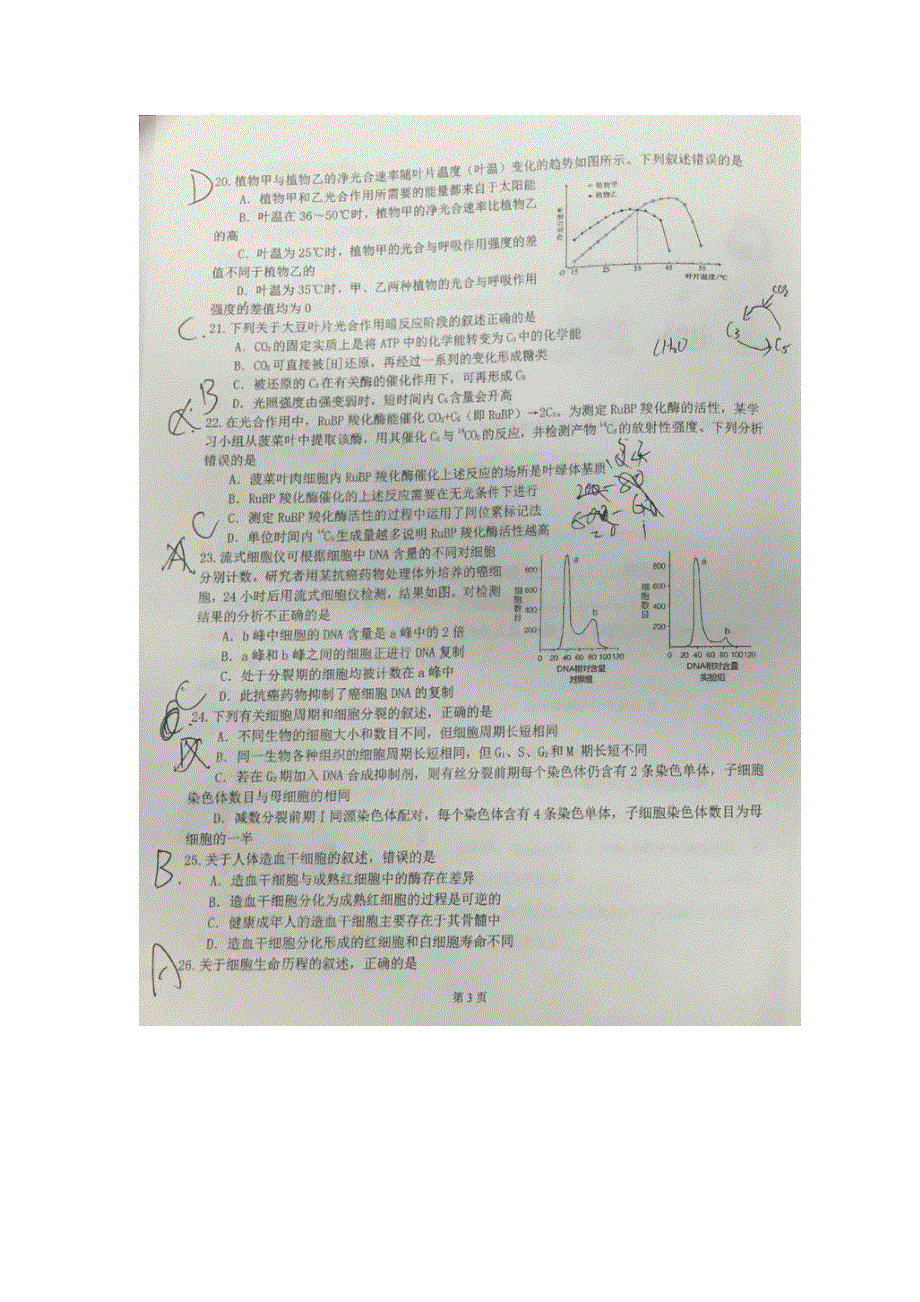 D 20.植物甲与植物乙的净光合速率随叶片温度（叶温）变化的趋势如图所示。下列叙述错误的是
A. 植物甲和乙光合作用所需要的能量都来自于太阳能
B. 叶温在36～50℃时，植物甲的净光合速率比植物乙
的高
C. 叶温为25℃时，植物甲的光合与呼吸作用强度的差
值不同于植物乙的
D. 叶温为35℃时，甲、乙两种植物的光合与呼吸作用
强度的差值均为0
植物甲
植物乙
净光合速率
O 15 25 35 45 55
叶片温度/℃
C. 21.下列关于大豆叶片光合作用暗反应阶段的叙述正确的是
A. CO₂的固定实质上是将ATP中的化学能转变为C₃中的化学能
B. CO₂可直接被[H]还原，再经过一系列的变化形成糖类
C. 被还原的C₃在有关酶的催化作用下，可再形成C₅
D. 光照强度由强变弱时，短时间内C₅含量会升高
CO₂
C₃
C₅
CH₂O
B
22.在光合作用中，RuBP羧化酶能催化CO₂+C₅（即RuBP）→2C₃。为测定RuBP羧化酶的活性，某学
习小组从菠菜叶中提取该酶，用其催化C₅与¹⁴CO₂的反应，并检测产物¹⁴C₃的放射性强度。下列分析
错误的是
A. 菠菜叶肉细胞内RuBP羧化酶催化上述反应的场所是叶绿体基质
B. RuBP羧化酶催化的上述反应需要在无光条件下进行
C. 测定RuBP羧化酶活性的过程中运用了同位素标记法
D. 单位时间内¹⁴C₃生成量越多说明RuBP羧化酶活性越高
C
23.流式细胞仪可根据细胞中DNA含量的不同对细胞
分别计数。研究者用某抗癌药物处理体外培养的癌细
胞，24小时后用流式细胞仪检测，结果如图。对检测
结果的分析不正确的是
A. b峰中细胞的DNA含量是a峰中的2倍
B. a峰和b峰之间的细胞正进行DNA复制
C. 处于分裂期的细胞均被计数在a峰中
D. 此抗癌药物抑制了癌细胞DNA的复制
细胞数目
800
600
400
200
a
b
0 20 40 60 80 100120
DNA相对含量
对照组
细胞数目
800
600
400
200
a
b
0 20 40 60 80 100120
DNA相对含量
实验组
C
24.下列有关细胞周期和细胞分裂的叙述，正确的是
A. 不同生物的细胞大小和数目不同，但细胞周期长短相同
B. 同一生物各种组织的细胞周期长短相同，但G₁、S、G₂和M 期长短不同
C. 若在G₂期加入DNA合成抑制剂，则有丝分裂前期每个染色体仍含有2条染色单体，子细胞
染色体数目与母细胞的相同
D. 减数分裂前期Ⅰ同源染色体配对，每个染色体含有4条染色单体，子细胞染色体数目为母
细胞的一半
B. 25.关于人体造血干细胞的叙述，错误的是
A. 造血干细胞与成熟红细胞中的酶存在差异
B. 造血干细胞分化为成熟红细胞的过程是可逆的
C. 健康成年人的造血干细胞主要存在于其骨髓中
D. 造血干细胞分化形成的红细胞和白细胞寿命不同
A 26.关于细胞生命历程的叙述，正确的是
第 3 页